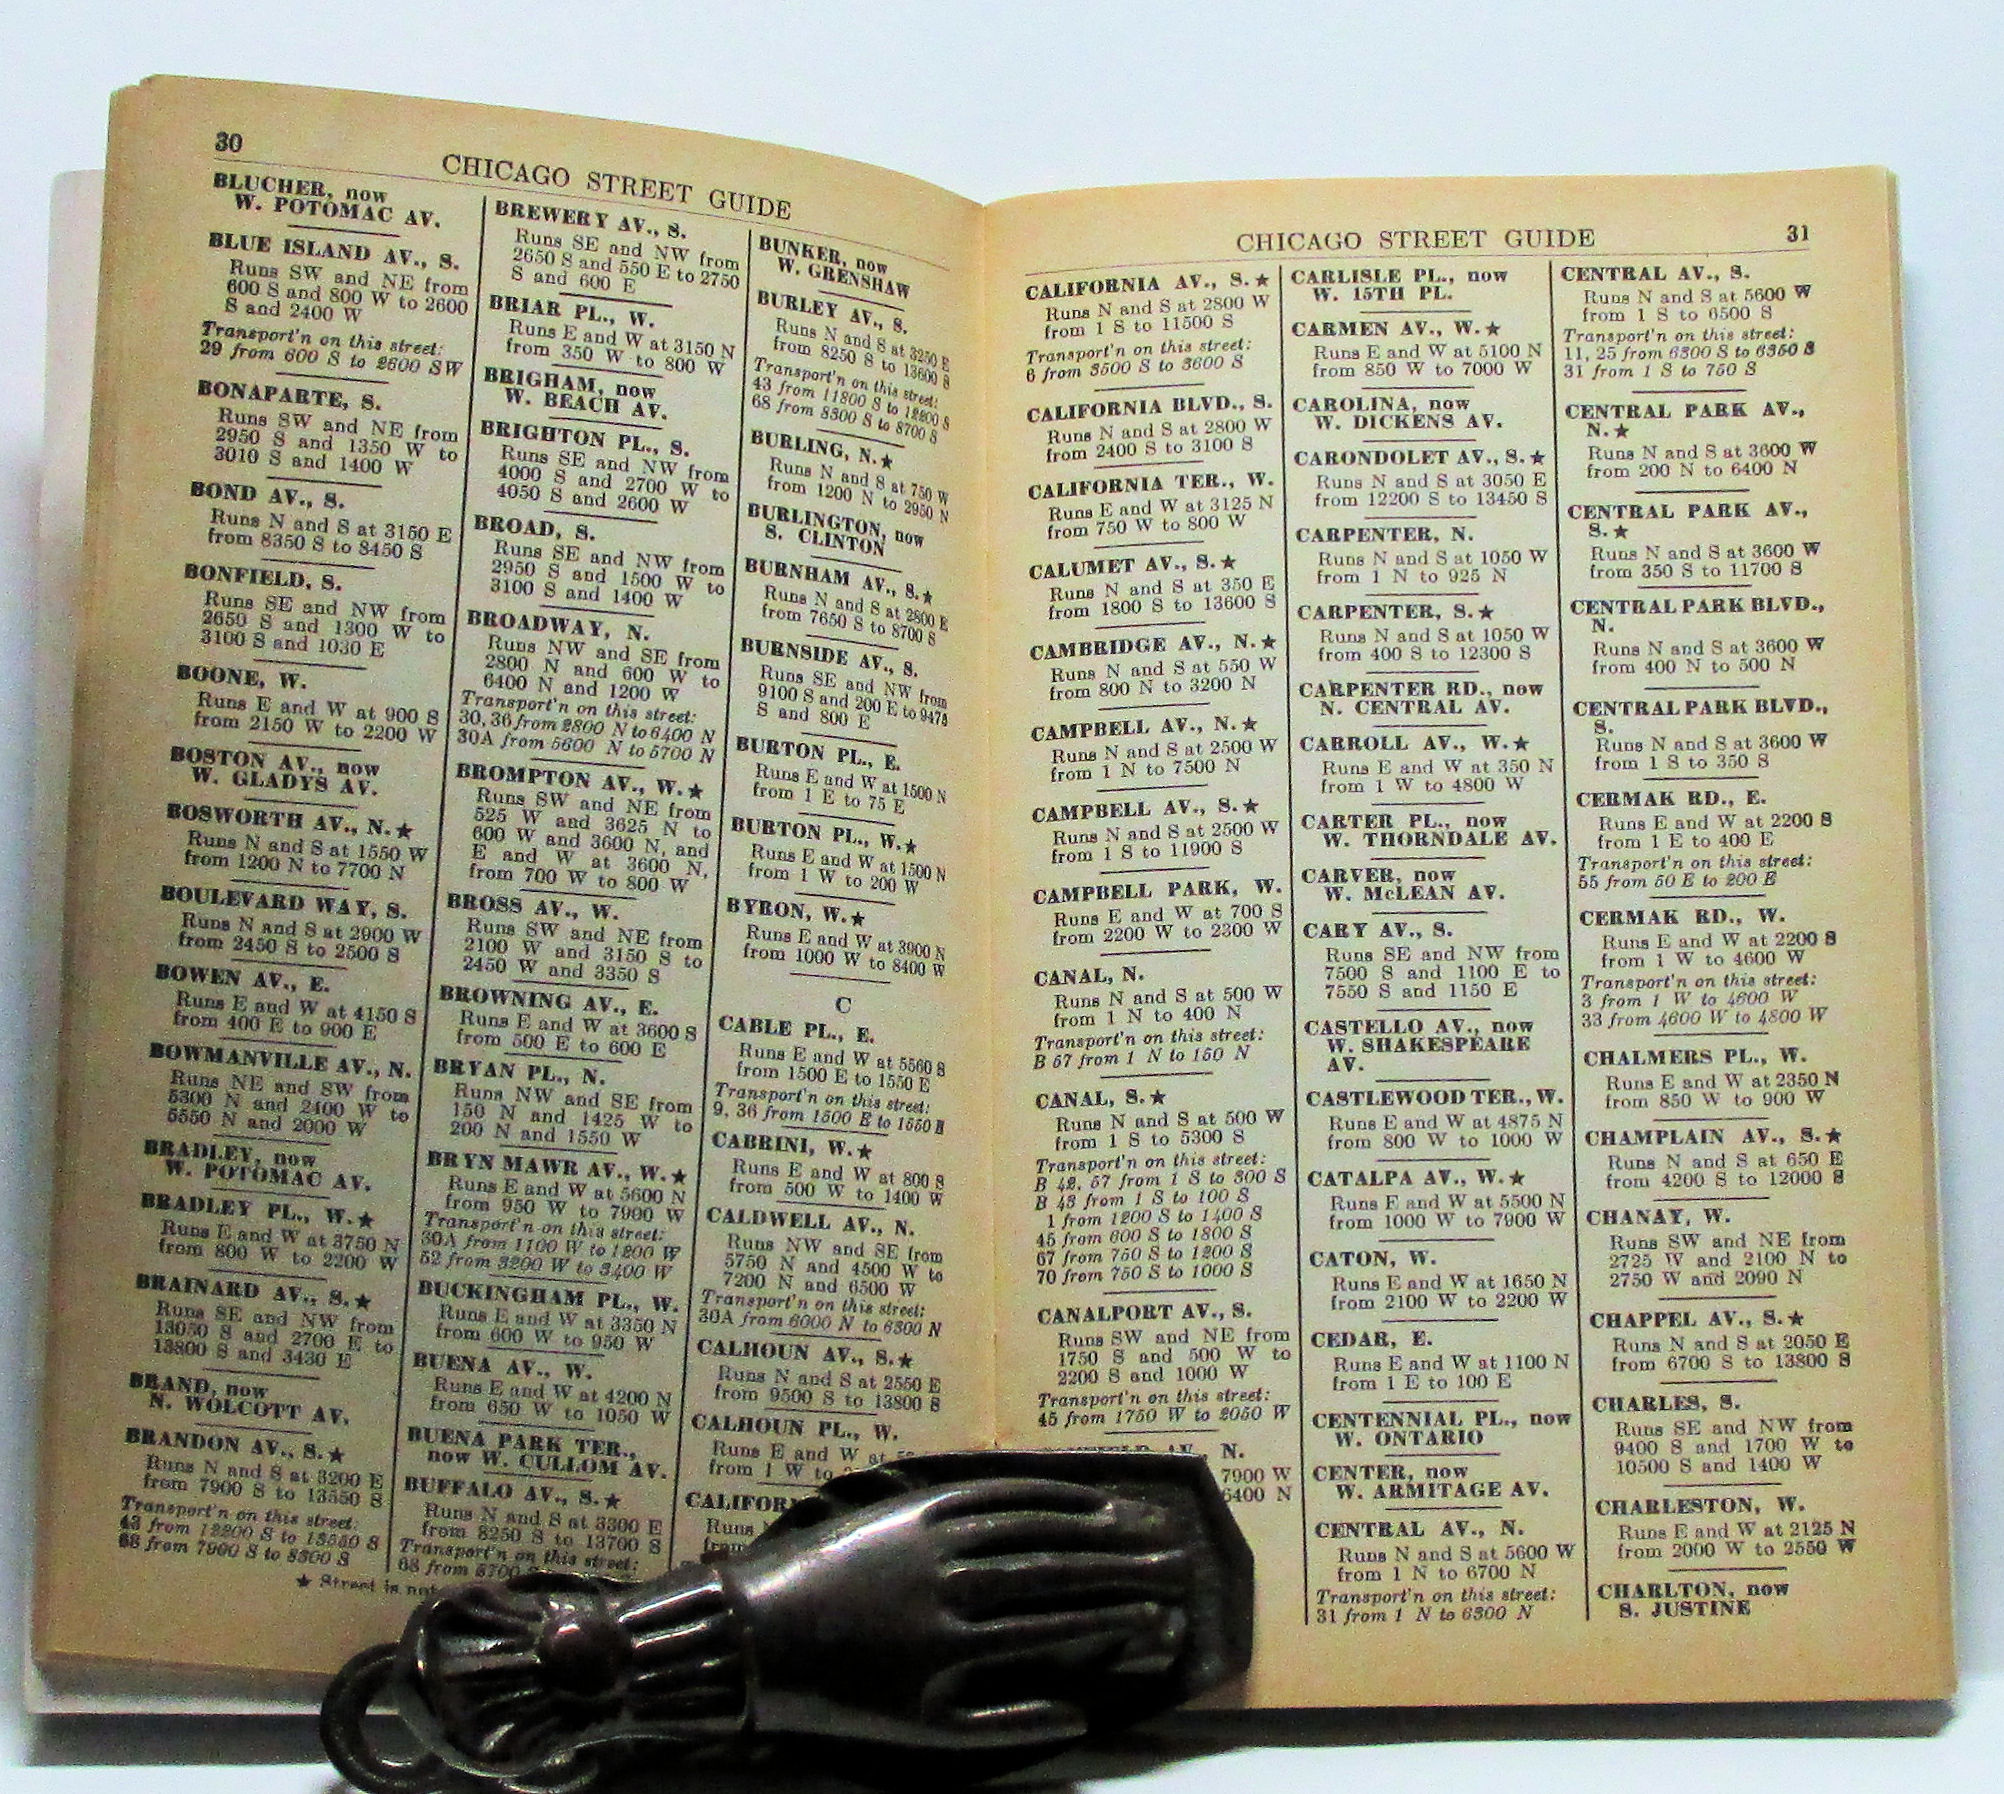 30
CHICAGO STREET GUIDE
BLUCHER, now
W. POTOMAC AV.
BLUE ISLAND AV., S.
Runs SW and NE from
600 S and 800 W to 2600
S and 2400 W
Transport'n on this street:
29 from 600 S to 2600 SW
BONAPARTE, S.
Runs SW and NE from
2950 S and 1350 W to
3010 S and 1400 W
BOND AV., S.
Runs N and S at 3150 E
from 8350 S to 8450 S
BONFIELD, S.
Runs SE and NW from
2650 S and 1300 W to
3100 S and 1030 E
BOONE, W.
Runs E and W at 900 S
from 2150 W to 2200 W
BOSTON AV., now
W. GLADYS AV.
BOSWORTH AV., N.★
Runs N and S at 1550 W
from 1200 N to 7700 N
BOULEVARD WAY, S.
Runs N and S at 2900 W
from 2450 S to 2500 S
BOWEN AV., E.
Runs E and W at 4150 S
from 400 E to 900 E
BOWMANVILLE AV., N.
Runs NE and SW from
5300 N and 2400 W to
5550 N and 2000 W
BRADLEY, now
W. POTOMAC AV.
BRADLEY PL., W.★
Runs E and W at 3750 N
from 800 W to 2200 W
BRAINARD AV., S.★
Runs SE and NW from
13050 S and 2700 E to
13800 S and 3430 E
BRAND, now
N. WOLCOTT AV.
BRANDON AV., S.★
Runs N and S at 3200 E
from 7900 S to 13550 S
Transport'n on this street:
43 from 12200 S to 13550 S
68 from 7900 S to 8300 S
★ Street is not
BREWERY AV., S.
Runs SE and NW from
2650 S and 550 E to 2750
S and 600 E
BRIAR PL., W.
Runs E and W at 3150 N
from 350 W to 800 W
BRIGHAM, now
W. BEACH AV.
BRIGHTON PL., S.
Runs SE and NW from
4000 S and 2700 W to
4050 S and 2600 W
BROAD, S.
Runs SE and NW from
2950 S and 1500 W to
3100 S and 1400 W
BROADWAY, N.
Runs NW and SE from
2800 N and 600 W to
6400 N and 1200 W
Transport'n on this street:
30, 36 from 2800 N to 6400 N
30A from 5600 N to 5700 N
BROMPTON AV., W.★
Runs SW and NE from
525 W and 3625 N to
600 W and 3600 N, and
E and W at 3600 N,
from 700 W to 800 W
BROSS AV., W.
Runs SW and NE from
2100 W and 3150 S to
2450 W and 3350 S
BROWNING AV., E.
Runs E and W at 3600 S
from 500 E to 600 E
BRYAN PL., N.
Runs NW and SE from
150 N and 1425 W to
200 N and 1550 W
BRYN MAWR AV., W.★
Runs E and W at 5600 N
from 950 W to 7900 W
Transport'n on this street:
30A from 1100 W to 1200 W
52 from 3200 W to 3400 W
BUCKINGHAM PL., W.
Runs E and W at 3350 N
from 600 W to 950 W
BUENA AV., W.
Runs E and W at 4200 N
from 650 W to 1050 W
BUENA PARK TER.,
now W. CULLOM AV.
BUFFALO AV., S.★
Runs N and S at 3300 E
from 8250 S to 13700 S
Transport'n on this street:
68 from 8700
BUNKER, now
W. GRENSHAW
BURLEY AV., S.
Runs N and S at 3250 E
from 8250 S to 13600 S
Transport'n on this street:
43 from 11800 S to 12200 S
68 from 8300 S to 8700 S
BURLING, N.★
Runs N and S at 750 W
from 1200 N to 2950 N
BURLINGTON, now
S. CLINTON
BURNHAM AV., S.★
Runs N and S at 2800 E
from 7650 S to 8700 S
BURNSIDE AV., S.
Runs SE and NW from
9100 S and 200 E to 9475
S and 800 E
BURTON PL., E.
Runs E and W at 1500 N
from 1 E to 75 E
BURTON PL., W.★
Runs E and W at 1500 N
from 1 W to 200 W
BYRON, W.★
Runs E and W at 3900 N
from 1000 W to 8400 W
C
CABLE PL., E.
Runs E and W at 5560 S
from 1500 E to 1550 E
Transport'n on this street:
9, 36 from 1500 E to 1550 E
CABRINI, W.★
Runs E and W at 800 S
from 500 W to 1400 W
CALDWELL AV., N.
Runs NW and SE from
5750 N and 4500 W to
7200 N and 6500 W
Transport'n on this street:
30A from 6000 N to 6300 N
CALHOUN AV., S.★
Runs N and S at 2550 E
from 9500 S to 13800 S
CALHOUN PL., W.
Runs E and W at
from 1 W to
CALIFORN
Runs
from
CHICAGO STREET GUIDE
31
CALIFORNIA AV., S.★
Runs N and S at 2800 W
from 1 S to 11500 S
Transport'n on this street:
6 from 3500 S to 3600 S
CALIFORNIA BLVD., S.
Runs N and S at 2800 W
from 2400 S to 3100 S
CALIFORNIA TER., W.
Runs E and W at 3125 N
from 750 W to 800 W
CALUMET AV., S.★
Runs N and S at 350 E
from 1800 S to 13600 S
CAMBRIDGE AV., N.★
Runs N and S at 550 W
from 800 N to 3200 N
CAMPBELL AV., N.★
Runs N and S at 2500 W
from 1 N to 7500 N
CAMPBELL AV., S.★
Runs N and S at 2500 W
from 1 S to 11900 S
CAMPBELL PARK, W.
Runs E and W at 700 S
from 2200 W to 2300 W
CANAL, N.
Runs N and S at 500 W
from 1 N to 400 N
Transport'n on this street:
B 57 from 1 N to 150 N
CANAL, S.★
Runs N and S at 500 W
from 1 S to 5300 S
Transport'n on this street:
B 42, 57 from 1 S to 300 S
B 43 from 1 S to 100 S
1 from 1200 S to 1400 S
45 from 600 S to 1800 S
67 from 750 S to 1200 S
70 from 750 S to 1000 S
CANALPORT AV., S.
Runs SW and NE from
1750 S and 500 W to
2200 S and 1000 W
Transport'n on this street:
45 from 1750 W to 2050 W
N.
7900 W
6400 N
CARLISLE PL., now
W. 15TH PL.
CARMEN AV., W.★
Runs E and W at 5100 N
from 850 W to 7000 W
CAROLINA, now
W. DICKENS AV.
CARONDOLET AV., S.★
Runs N and S at 3050 E
from 12200 S to 13450 S
CARPENTER, N.
Runs N and S at 1050 W
from 1 N to 925 N
CARPENTER, S.★
Runs N and S at 1050 W
from 400 S to 12300 S
CARPENTER RD., now
N. CENTRAL AV.
CARROLL AV., W.★
Runs E and W at 350 N
from 1 W to 4800 W
CARTER PL., now
W. THORNDALE AV.
CARVER, now
W. McLEAN AV.
CARY AV., S.
Runs SE and NW from
7500 S and 1100 E to
7550 S and 1150 E
CASTELLO AV., now
W. SHAKESPEARE
AV.
CASTLEWOOD TER., W.
Runs E and W at 4875 N
from 800 W to 1000 W
CATALPA AV., W.★
Runs E and W at 5500 N
from 1000 W to 7900 W
CATON, W.
Runs E and W at 1650 N
from 2100 W to 2200 W
CEDAR, E.
Runs E and W at 1100 N
from 1 E to 100 E
CENTENNIAL PL., now
W. ONTARIO
CENTER, now
W. ARMITAGE AV.
CENTRAL AV., N.
Runs N and S at 5600 W
from 1 N to 6700 N
Transport'n on this street:
31 from 1 N to 6300 N
CENTRAL AV., S.
Runs N and S at 5600 W
from 1 S to 6500 S
Transport'n on this street:
11, 25 from 6300 S to 6350 S
31 from 1 S to 750 S
CENTRAL PARK AV.,
N.★
Runs N and S at 3600 W
from 200 N to 6400 N
CENTRAL PARK AV.,
S.★
Runs N and S at 3600 W
from 350 S to 11700 S
CENTRAL PARK BLVD.,
N.
Runs N and S at 3600 W
from 400 N to 500 N
CENTRAL PARK BLVD.,
S.
Runs N and S at 3600 W
from 1 S to 350 S
CERMAK RD., E.
Runs E and W at 2200 S
from 1 E to 400 E
Transport'n on this street:
55 from 50 E to 200 E
CERMAK RD., W.
Runs E and W at 2200 S
from 1 W to 4600 W
Transport'n on this street:
3 from 1 W to 4600 W
33 from 4600 W to 4800 W
CHALMERS PL., W.
Runs E and W at 2350 N
from 850 W to 900 W
CHAMPLAIN AV., S.★
Runs N and S at 650 E
from 4200 S to 12000 S
CHANAY, W.
Runs SW and NE from
2725 W and 2100 N to
2750 W and 2090 N
CHAPPEL AV., S.★
Runs N and S at 2050 E
from 6700 S to 13800 S
CHARLES, S.
Runs SE and NW from
9400 S and 1700 W to
10500 S and 1400 W
CHARLESTON, W.
Runs E and W at 2125 N
from 2000 W to 2550 W
CHARLTON, now
S. JUSTINE